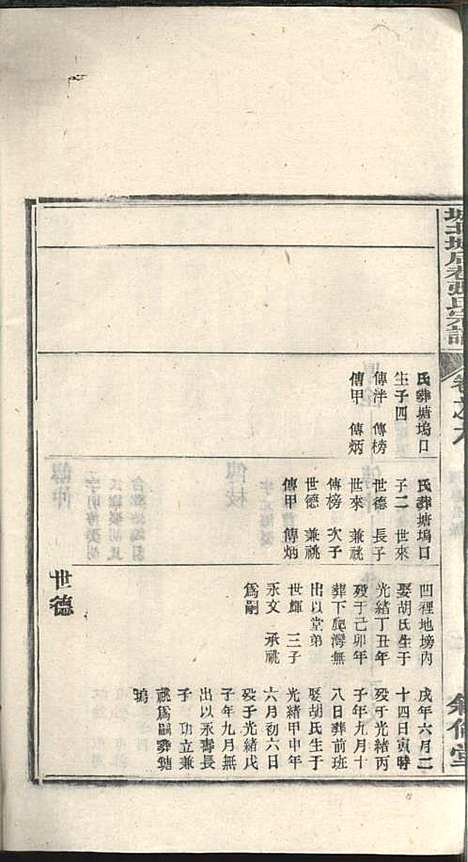 張氏宗譜
卷之九
氏葬塘塢口
生子四
傳泮 傳榜
傳甲 傳炳
氏葬塘塢口
子二 世來
世德 長子
世來 兼祧
傳榜 次子
世德 兼祧
傳甲 傳炳
凹裡地塝內
娶胡氏生于
光緒丁丑年
歿于己卯年
葬下爬灣無
出以堂弟
世輝 三子
永文 承祧
為嗣
世德
戌年六月二
十四日寅時
歿于光緒丙
子年九月十
八日葬前班
娶胡氏生于
光緒甲申年
六月初六日
歿于光緒戊
子年九月無
出以永壽長
子 功立兼
祧為嗣葬塘
塢